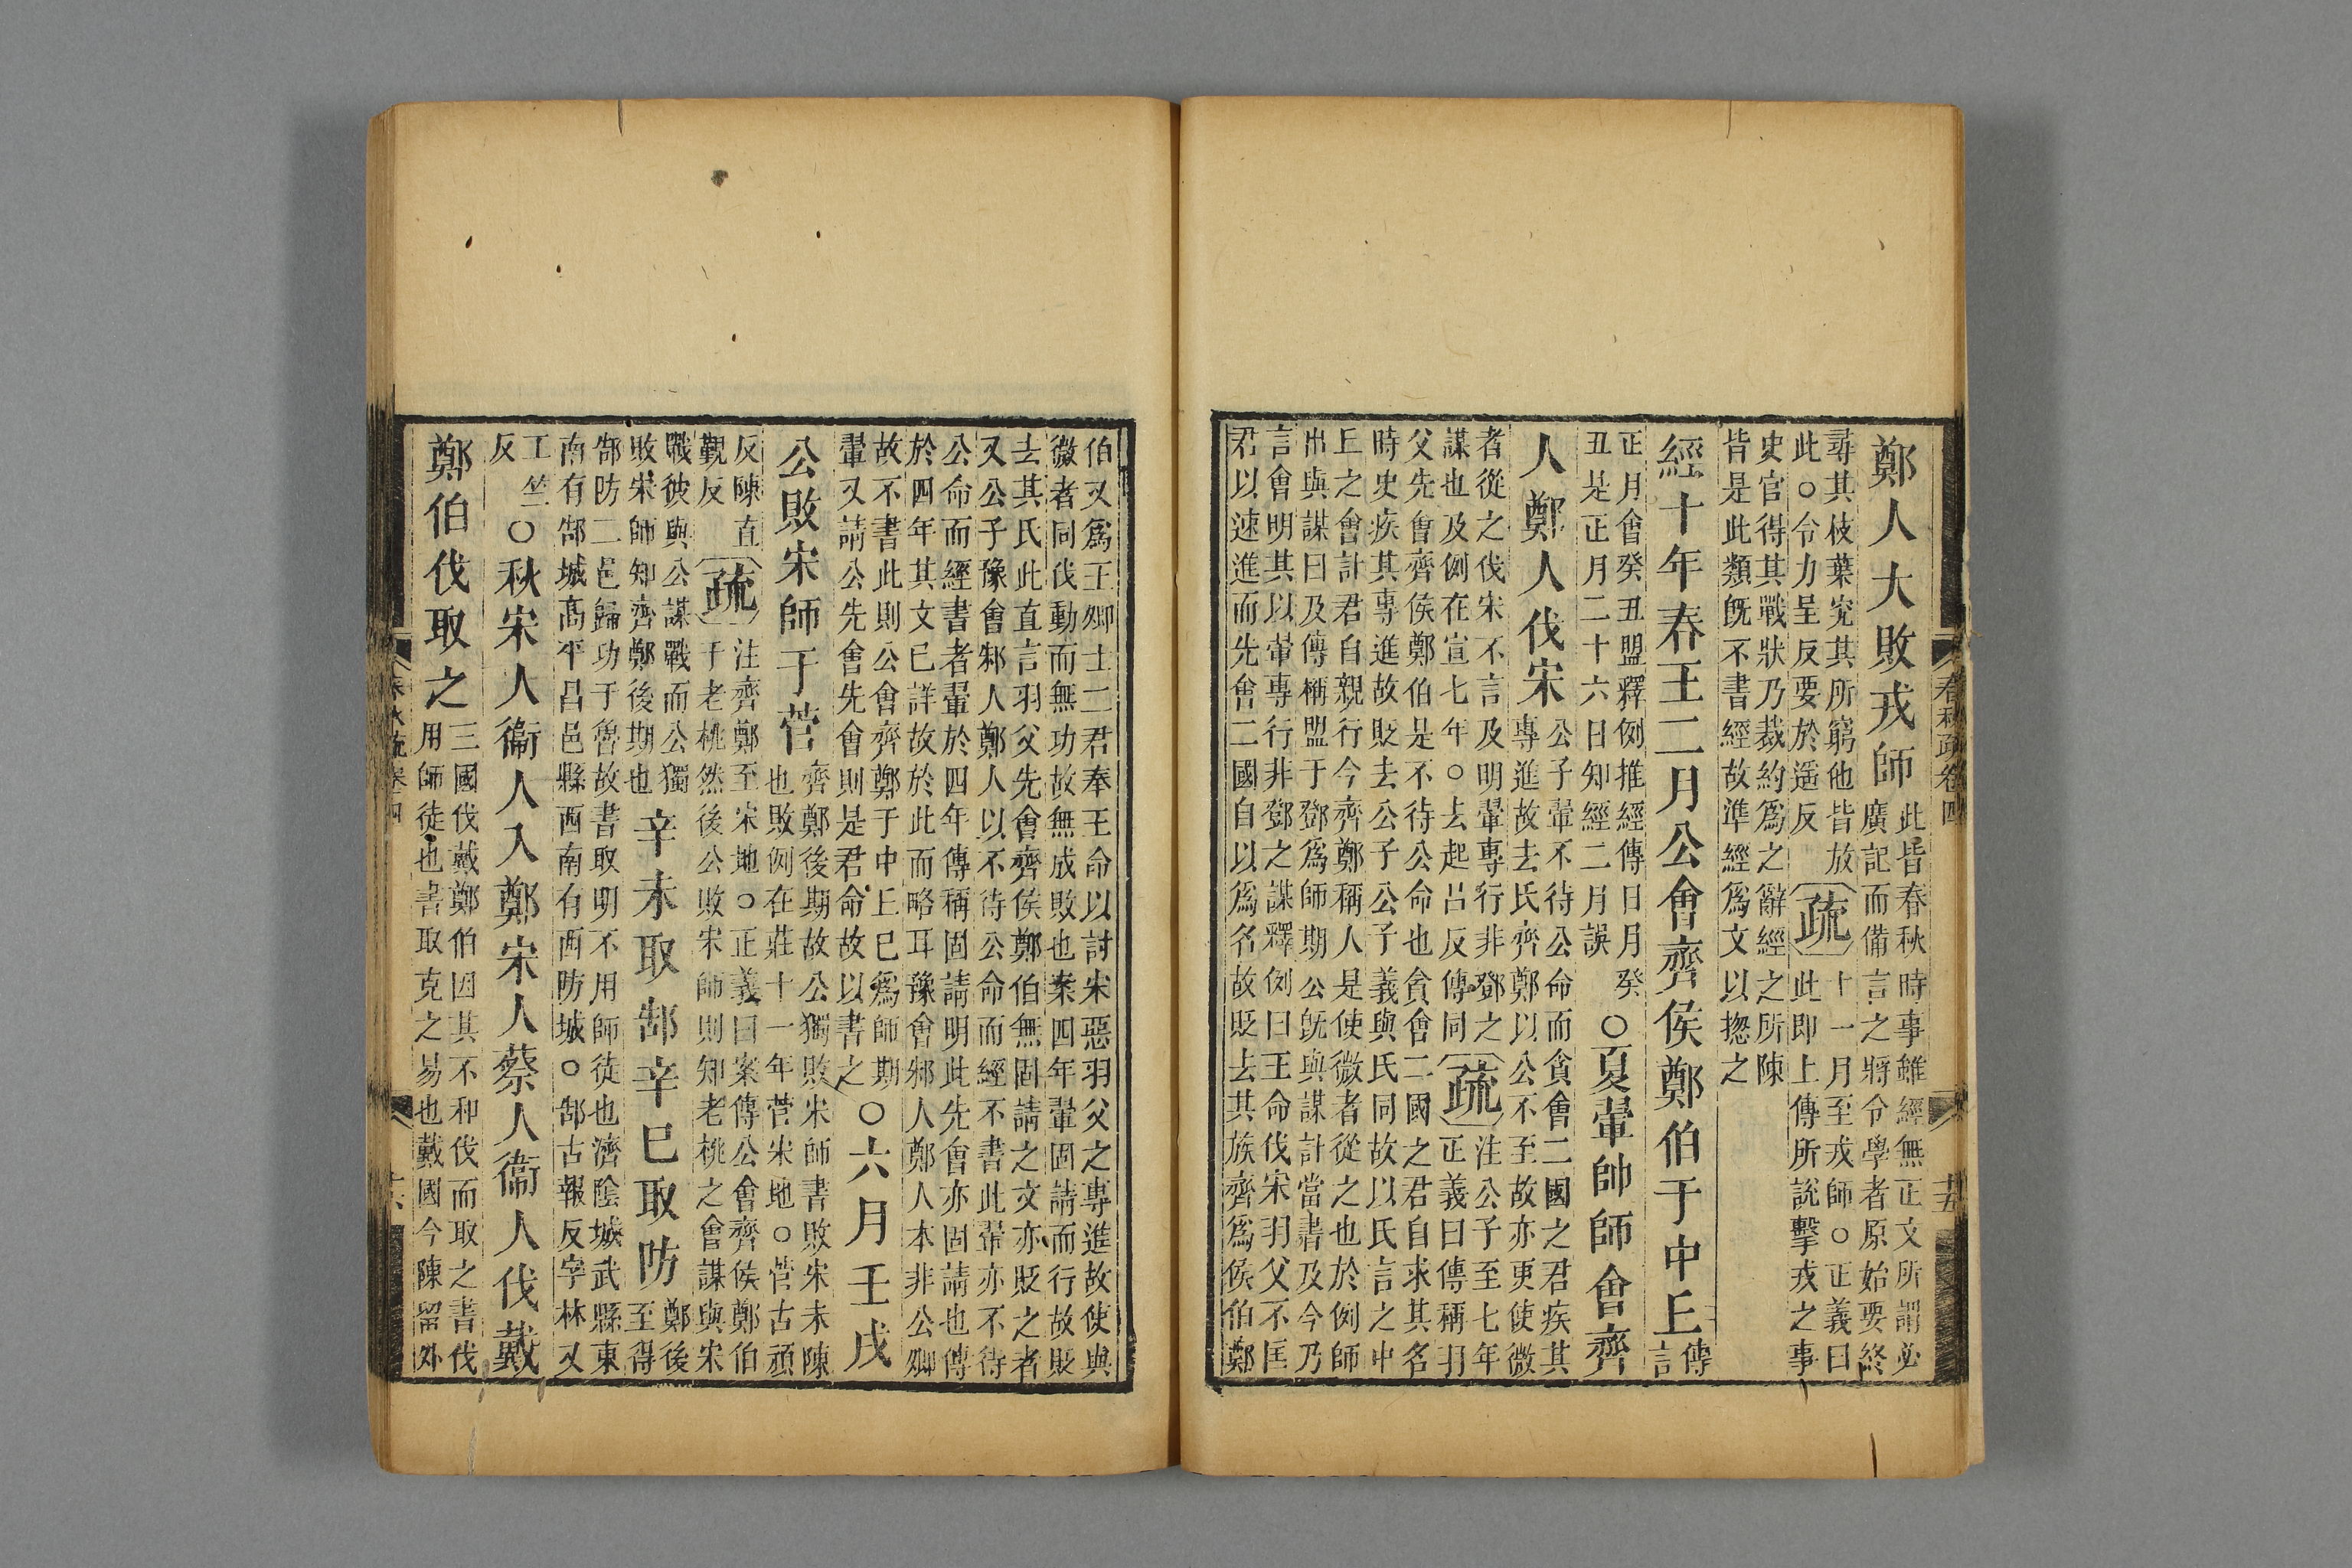 鄭人大敗戎師此皆春秋時事雖經無正文所謂必
廣記而備言之將令學者原始要終
尋其枝葉究其所窮他皆放
此○令力呈反要於遥反疏十一月至戎師○正義曰
此即上傳所說擊戎之事
史官得其戰狀乃裁約爲之辭經之所陳
皆是此類旣不書經故準經爲文以揔之
經十年春王二月公會齊侯鄭伯于中丘傳
言
正月會癸丑盟釋例推經傳日月癸
丑是正月二十六日知經二月誤○夏翬帥師會齊
人鄭人伐宋公子翬不待公命而貪會二國之君疾其
專進故去氏齊鄭以公不至故亦更使微
者從之伐宋不言及明翬專行非鄧之
謀也及例在宣七年○去起呂反傳同疏注公子至七年
正義曰傳稱羽
父先會齊侯鄭伯是不待公命也貪會二國之君自求其名
時史疾其專進故貶去公子公子義與氏同故以氏言之中
丘之會計君自親行今齊鄭稱人是使微者從之也於例師
出與謀曰及傳稱盟于鄧爲師期公旣與謀計當書及今乃
言會明其以翬專行非鄧之謀釋例曰王命伐宋羽父不匡
君以速進而先會二國自以爲名故貶去其族齊爲侯伯鄭
春秋疏卷四
十五
伯又爲王卿士二君奉王命以討宋惡羽父之專進故使與
微者同伐動而無功故無成敗也案四年翬固請而行故貶
去其氏此直言羽父先會齊侯鄭伯無固請之文亦貶之者
又公子豫會邾人鄭人以不待公命而經不書此翬亦不待
公命而經書者翬於四年傳稱固請明此先會亦固請也傳
於四年其文已詳故於此而略耳豫會邾人鄭人本非公卿
故不書此則公會齊鄭于中丘已爲師期
翬又請公先會先會則是君命故以書之○六月壬戌
公敗宋師于菅齊鄭後期故公獨敗宋師書敗宋未陳
也敗例在莊十一年菅宋地○菅古頑
反陳直
覲反疏注齊鄭至宋地○正義曰案傳公會齊侯鄭伯
于老桃然後公敗宋師則知老桃之會謀與宋
戰彼與公謀戰而公獨
敗宋師知齊鄭後期也辛未取郜辛巳取防鄭後
至得
郜防二邑歸功于魯故書取明不用師徒也濟陰城武縣東
南有郜城高平昌邑縣西南有西防城○郜古報反字林又
工竺
反○秋宋人衞人入鄭宋人蔡人衞人伐戴
鄭伯伐取之三國伐戴鄭伯因其不和伐而取之書伐
用師徒也書取克之易也戴國今陳留外